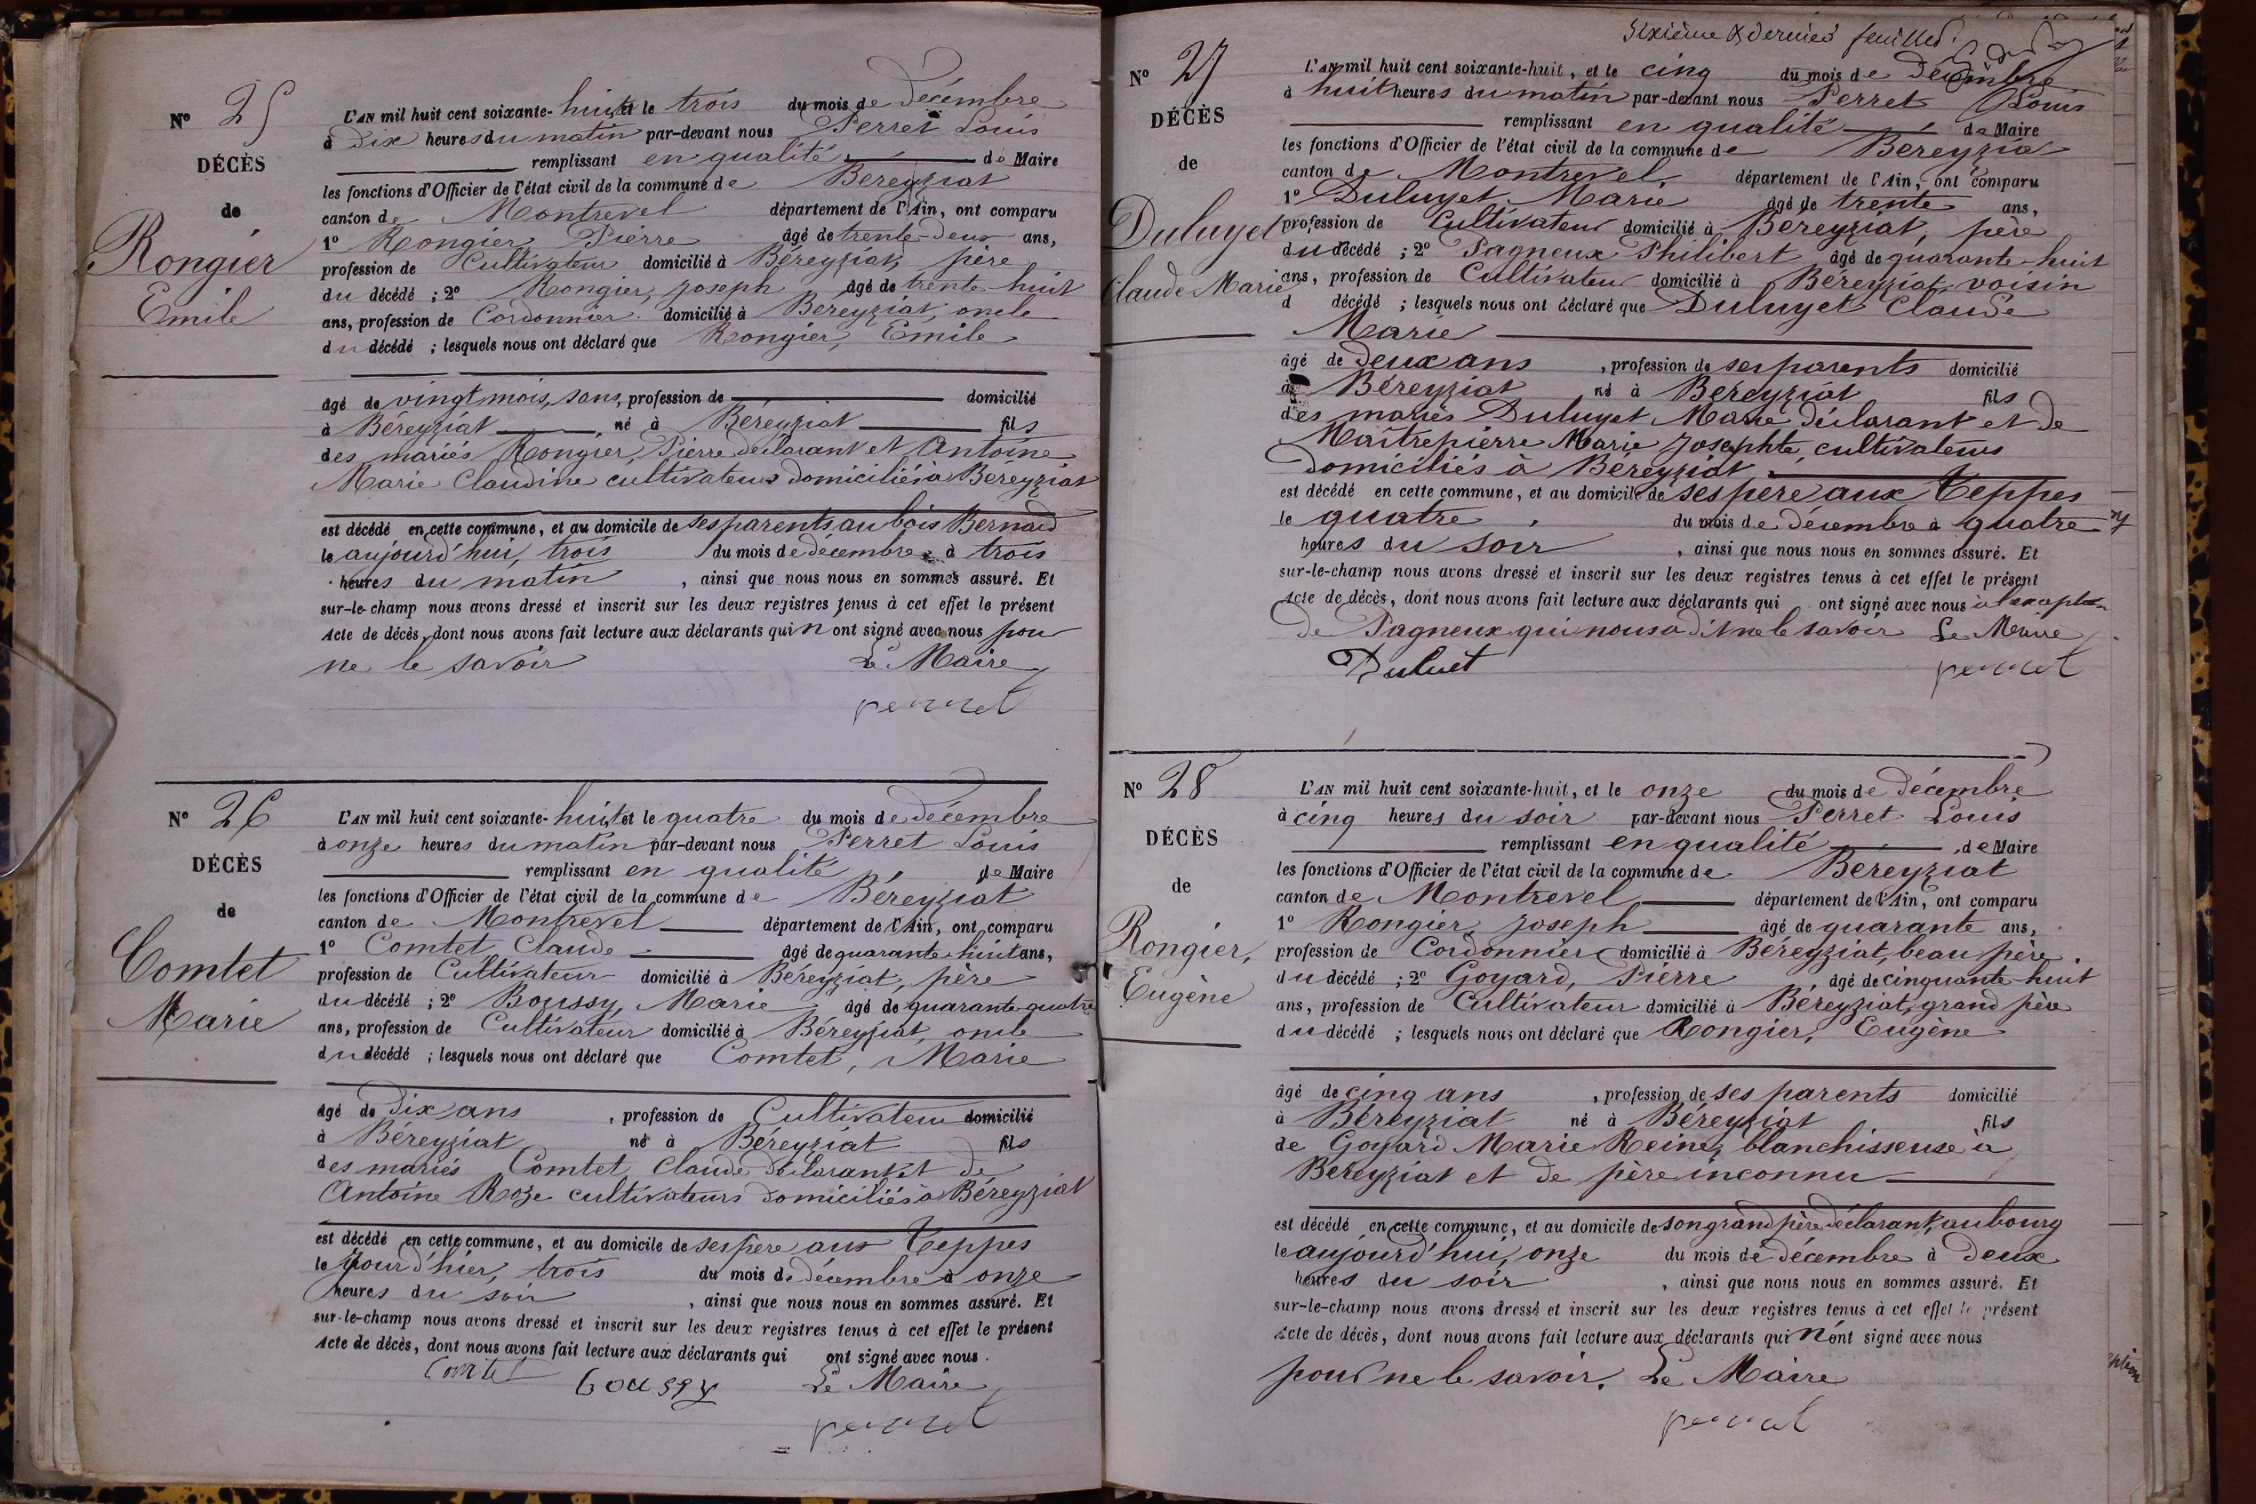 N° 25
DÉCÈS
de
Rongier
Emile
L'AN mil huit cent soixante-huit, et le trois du mois de Décembre
à Dix heures du matin par-devant nous Perret Louis
remplissant en qualité de Maire
les fonctions d'Officier de l'état civil de la commune de Béreyziat
canton de Montrevel département de l'Ain, ont comparu
1° Rongier, Pierre âgé de trente-deux ans,
profession de Cultivateur domicilié à Béreyziat, père
du décédé ; 2° Rongier, Joseph âgé de trente-huit
ans, profession de Cordonnier domicilié à Béreyziat, oncle
du décédé ; lesquels nous ont déclaré que Rongier, Emile
âgé de vingt mois, sans, profession de domicilié
à Béreyziat né à Béreyziat fils
des mariés Rongier, Pierre déclarant et Antoine
Marie Claudine cultivateurs domiciliés à Béreyziat
est décédé en cette commune, et au domicile de ses parents au bois Bernard
le aujourd'hui, trois du mois de décembre à trois
heures du matin, ainsi que nous nous en sommes assuré. Et
sur-le-champ nous avons dressé et inscrit sur les deux registres tenus à cet effet le présent
Acte de décès, dont nous avons fait lecture aux déclarants qui n'ont signé avec nous pour
ne le savoir Le Maire
perret
N° 26
DÉCÈS
de
Comtet
Marie
L'AN mil huit cent soixante-huit, et le quatre du mois de décembre
à onze heures du matin par-devant nous Perret Louis
remplissant en qualité de Maire
les fonctions d'Officier de l'état civil de la commune de Béreyziat
canton de Montrevel département de l'Ain, ont comparu
1° Comtet, Claude âgé de quarante-huit ans,
profession de Cultivateur domicilié à Béreyziat, père
du décédé ; 2° Boussy, Marie âgé de quarante-quatre
ans, profession de Cultivateur domicilié à Béreyziat, oncle
du décédé ; lesquels nous ont déclaré que Comtet, Marie
âgé de Dix ans, profession de Cultivateur domicilié
à Béreyziat né à Béreyziat fils
des mariés Comtet, Claude déclarant et de
Antoine Roze cultivateurs domiciliés à Béreyziat
est décédé en cette commune, et au domicile de ses père aux Teppes
le jour d'hier, trois du mois de décembre à onze
heures du soir, ainsi que nous nous en sommes assuré. Et
sur-le-champ nous avons dressé et inscrit sur les deux registres tenus à cet effet le présent
Acte de décès, dont nous avons fait lecture aux déclarants qui ont signé avec nous.
Comtet boussy Le Maire
perret
Sixième & dernier feuillet.
N° 27
DÉCÈS
de
Duluyet
Claude Marie
L'AN mil huit cent soixante-huit, et le cinq du mois de Décembre
à huit heures du matin par-devant nous Perret Louis
remplissant en qualité de Maire
les fonctions d'Officier de l'état civil de la commune de Béreyziat
canton de Montrevel, département de l'Ain, ont comparu
1° Duluyet Marie âgé de trente ans,
profession de Cultivateur domicilié à Béreyziat, père
du décédé ; 2° Pagneux Philibert âgé de quarante-huit
ans, profession de Cultivateur domicilié à Béreyziat voisin
d décédé ; lesquels nous ont déclaré que Duluyet Claude
Marie
âgé de deux ans, profession de ses parents domicilié
à Béreyziat né à Béreyziat fils
des mariés Duluyet Marie déclarant et de
Maîtrepierre Marie Josephte, cultivateurs
domiciliés à Béreyziat,
est décédé en cette commune, et au domicile de ses père aux Teppes
le quatre du mois de décembre à quatre
heures du soir, ainsi que nous nous en sommes assuré. Et
sur-le-champ nous avons dressé et inscrit sur les deux registres tenus à cet effet le présent
Acte de décès, dont nous avons fait lecture aux déclarants qui ont signé avec nous à l'exception
de Pagneux qui nous a dit ne le savoir Le Maire
Duluet perret
N° 28
DÉCÈS
de
Rongier,
Eugène
L'AN mil huit cent soixante-huit, et le onze du mois de décembre
à cinq heures du soir par-devant nous Perret Louis
remplissant en qualité de Maire
les fonctions d'Officier de l'état civil de la commune de Béreyziat
canton de Montrevel département de l'Ain, ont comparu
1° Rongier, Joseph âgé de quarante ans,
profession de Cordonnier domicilié à Béreyziat, beau père
du décédé ; 2° Goyard, Pierre âgé de cinquante-huit
ans, profession de Cultivateur domicilié à Béreyziat, grand père
du décédé ; lesquels nous ont déclaré que Rongier, Eugène
âgé de cinq ans, profession de ses parents domicilié
à Béreyziat né à Béreyziat fils
de Goyard Marie Reine, blanchisseuse à
Béreyziat et de père inconnu
est décédé en cette commune, et au domicile de son grand père déclarant, au bourg
le aujourd'hui, onze du mois de décembre à deux
heures du soir, ainsi que nous nous en sommes assuré. Et
sur-le-champ nous avons dressé et inscrit sur les deux registres tenus à cet effet le présent
Acte de décès, dont nous avons fait lecture aux déclarants qui n'ont signé avec nous
pour ne le savoir. Le Maire
perret